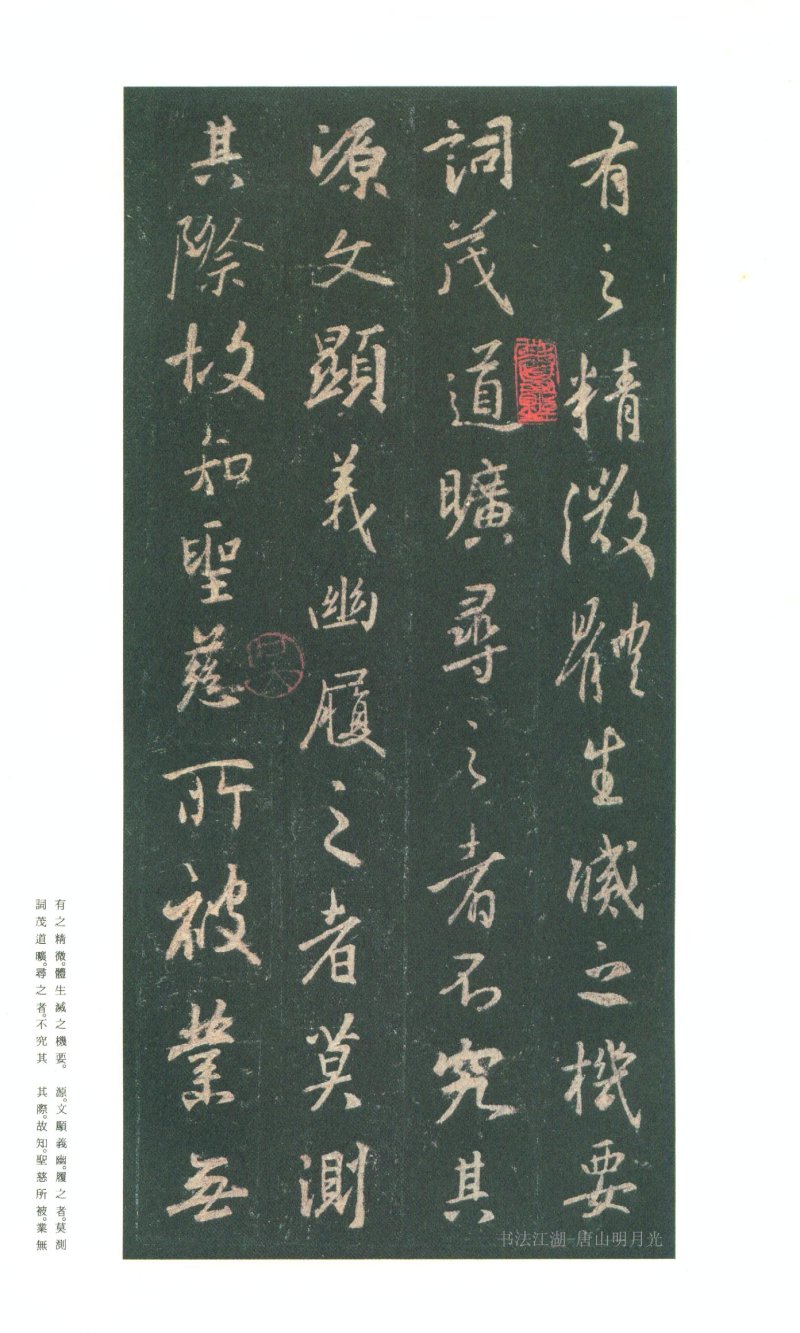 有之精微體生滅之機要
詞茂道曠尋之者不究其
源文顯義幽履之者莫測
其際故知聖慈所被業無
有之精微。體生滅之機要。
詞茂道曠。尋之者。不究其
源。文顯義幽。履之者。莫測
其際。故知。聖慈所被。業無
书法江湖-唐山明月光